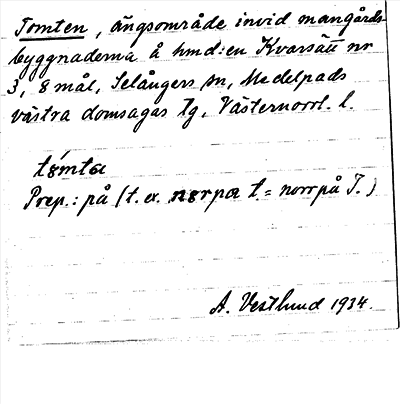 Tomten, ängsområde invid mangårds-
byggnaderna å hmd:en Kvarsätt nr
3, 8 mål, Selångers sn, Medelpads
västra domsagas tg, Västernorrl. l.
tómta
Prep.: på (t. ex. norpa t. = norrpå T.)
A. Vestlund 1934.